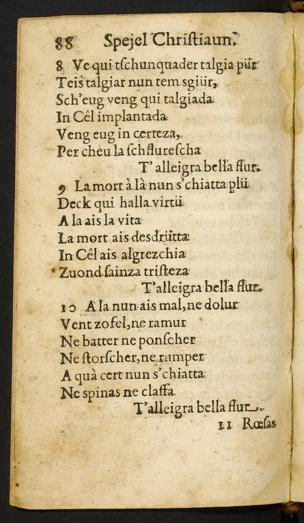 88 Spejel Christiaun.
8 Ve qui tſchunquader talgia pür
Teis talgiar nun tem sgiür,
Sch'eug veng qui talgiada
In Cêl implantada
Veng eug in certeza,
Per cheu la ſchflureſcha
T'alleigra bella flur.
9 La mort à là nun s'chiatta plü
Deck qui halla virtü
A la ais la vita
La mort ais desdrütta
In Cêl ais algrezchia
Zuond ſainza triſteza
T'alleigra bella flur.
10 A la nun ais mal, ne dolur
Vent zofel, ne ramur
Ne batter ne ponſcher
Ne ſtorſcher, ne rumper
A quà cert nun s'chiatta
Ne spinas ne claſſa
T'alleigra bella flur.
11 Rœſas